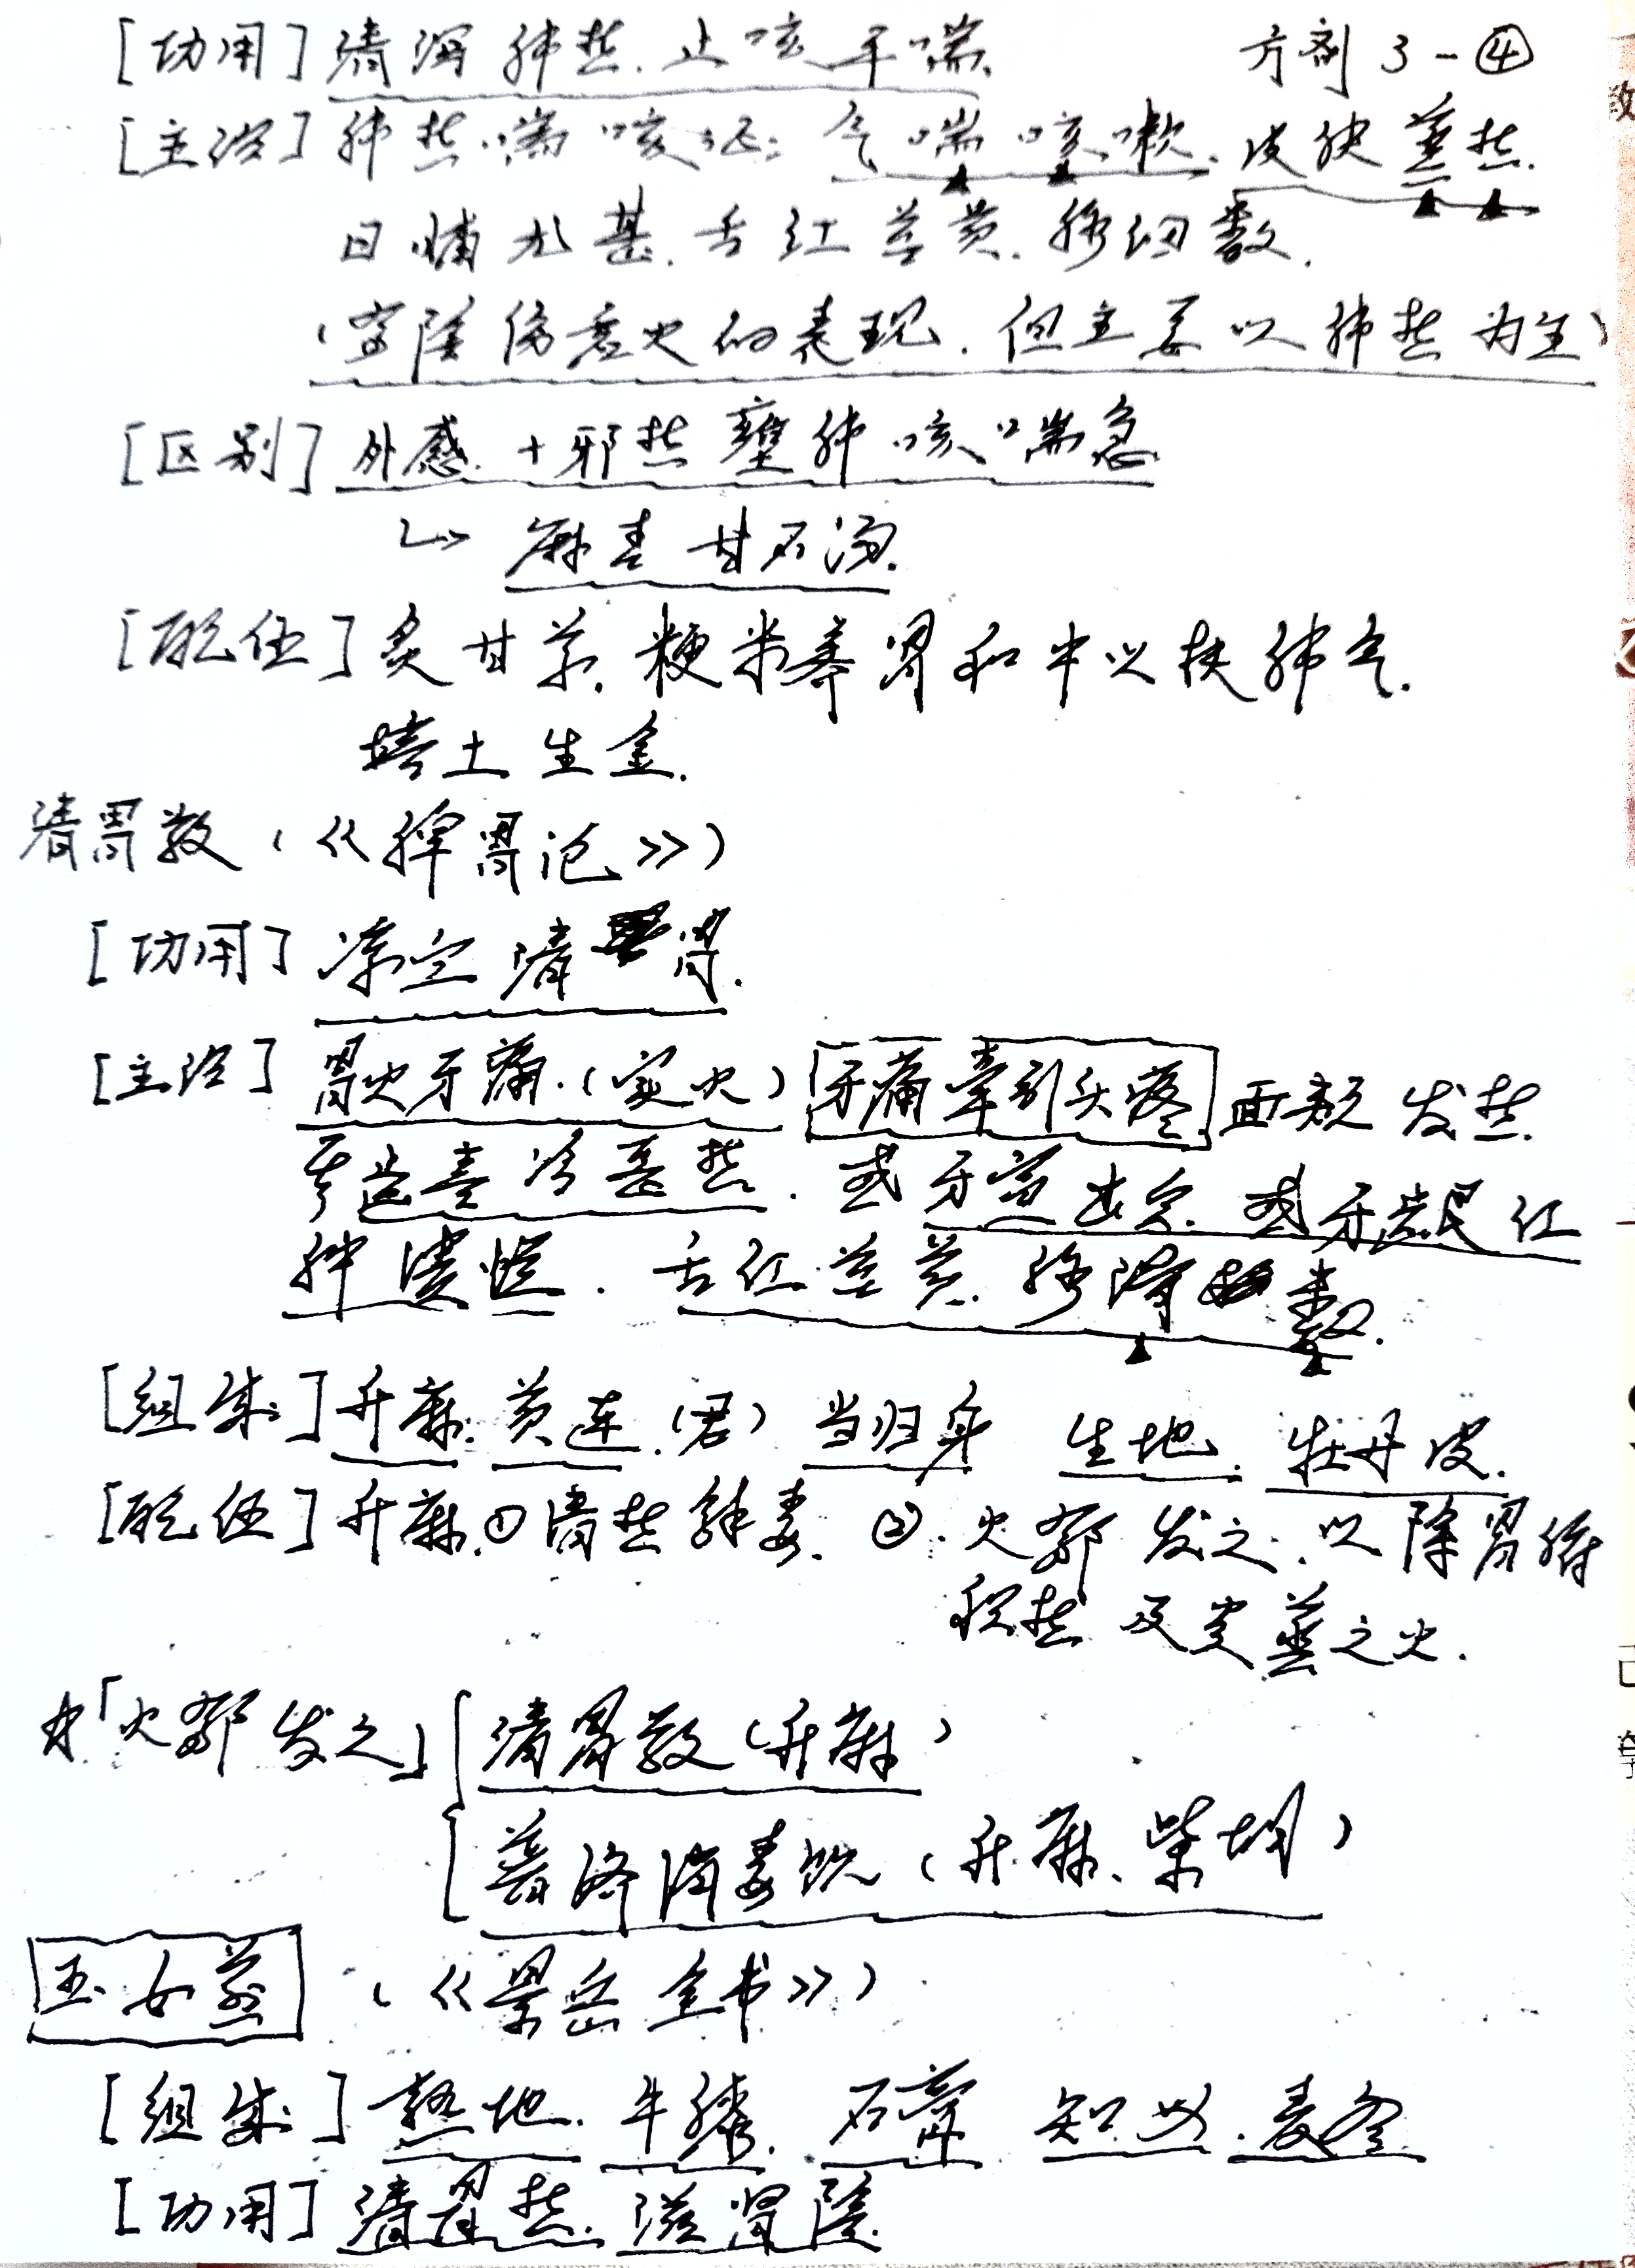 方剂 3-④
[功用] 清泻肺热. 止咳平喘.
[主治] 肺热喘咳证: 气喘咳嗽. 皮肤蒸热.
日晡尤甚. 舌红苔黄. 脉细数.
的表现. 但主要以肺热为主)
[区别] 外感. +邪热壅肺咳喘急
↳ 麻杏甘石汤.
[配伍] 炙甘草. 粳米养胃和中以扶肺气.
培土生金.
清胃散 (《脾胃论》)
[功用] 凉血清胃.
[主治] 胃火牙痛.(实火) 牙痛牵引头疼. 面颊发热.
其齿喜冷恶热. 或牙宣出血. 或牙龈红
肿溃烂. 舌红苔黄. 脉滑数.
[组成] 升麻. 黄连.(君) 当归身 生地. 牡丹皮.
[配伍] 升麻.①清热解毒. ②.火郁发之. 以除胃府
积热及炎蒸之火.
「火郁发之」 清胃散(升麻)
普济消毒饮(升麻、柴胡)
玉女煎 (《景岳全书》)
[组成] 熟地. 牛膝. 石膏 知母. 麦冬
[功用] 清胃热. 滋肾阴.